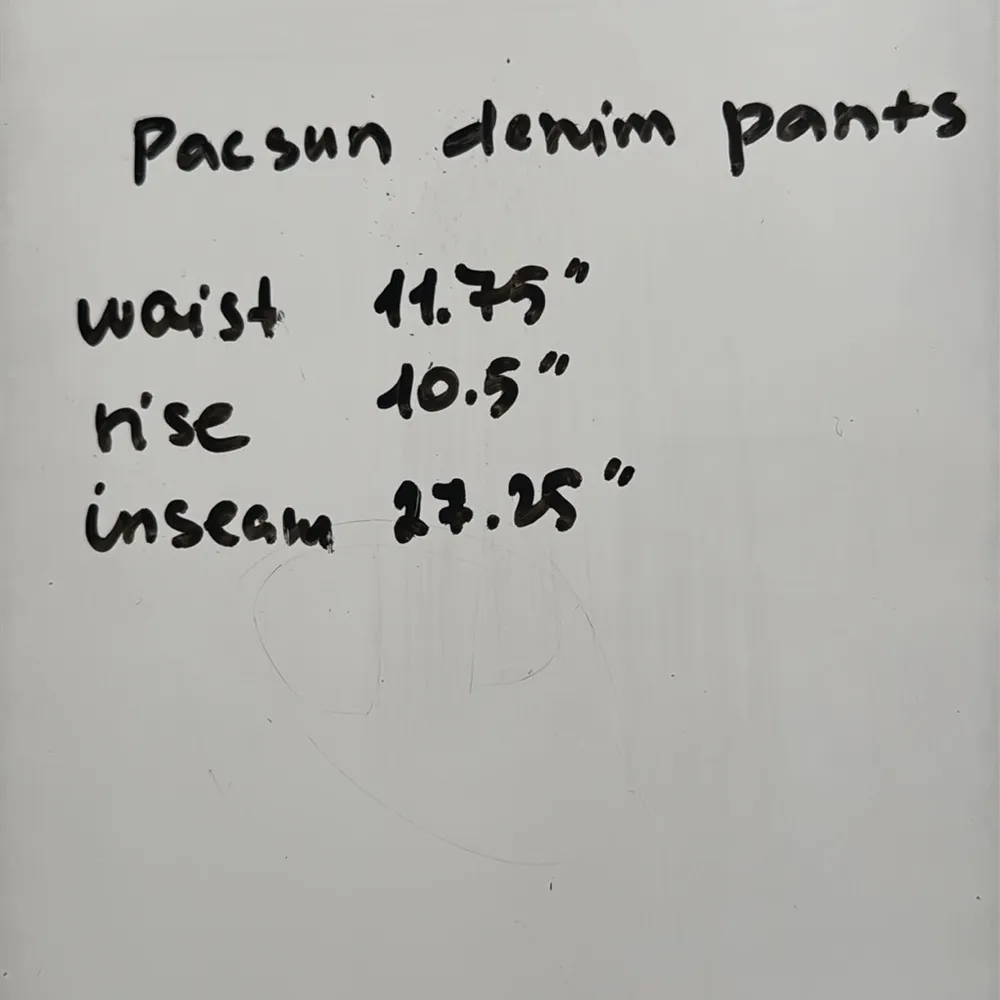 Pacsun denim pants
waist 11.75"
rise 10.5"
inseam 27.25"